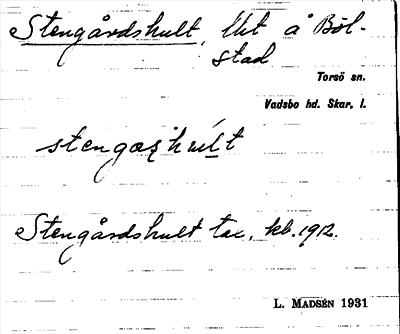 Stengårdshult, lht å Böl-
stad
Torsö sn.
Vadsbo hd. Skar. l.
stengaʂhult
Stengårdshult tax, kb. 1912.
L. MADSÉN 1931